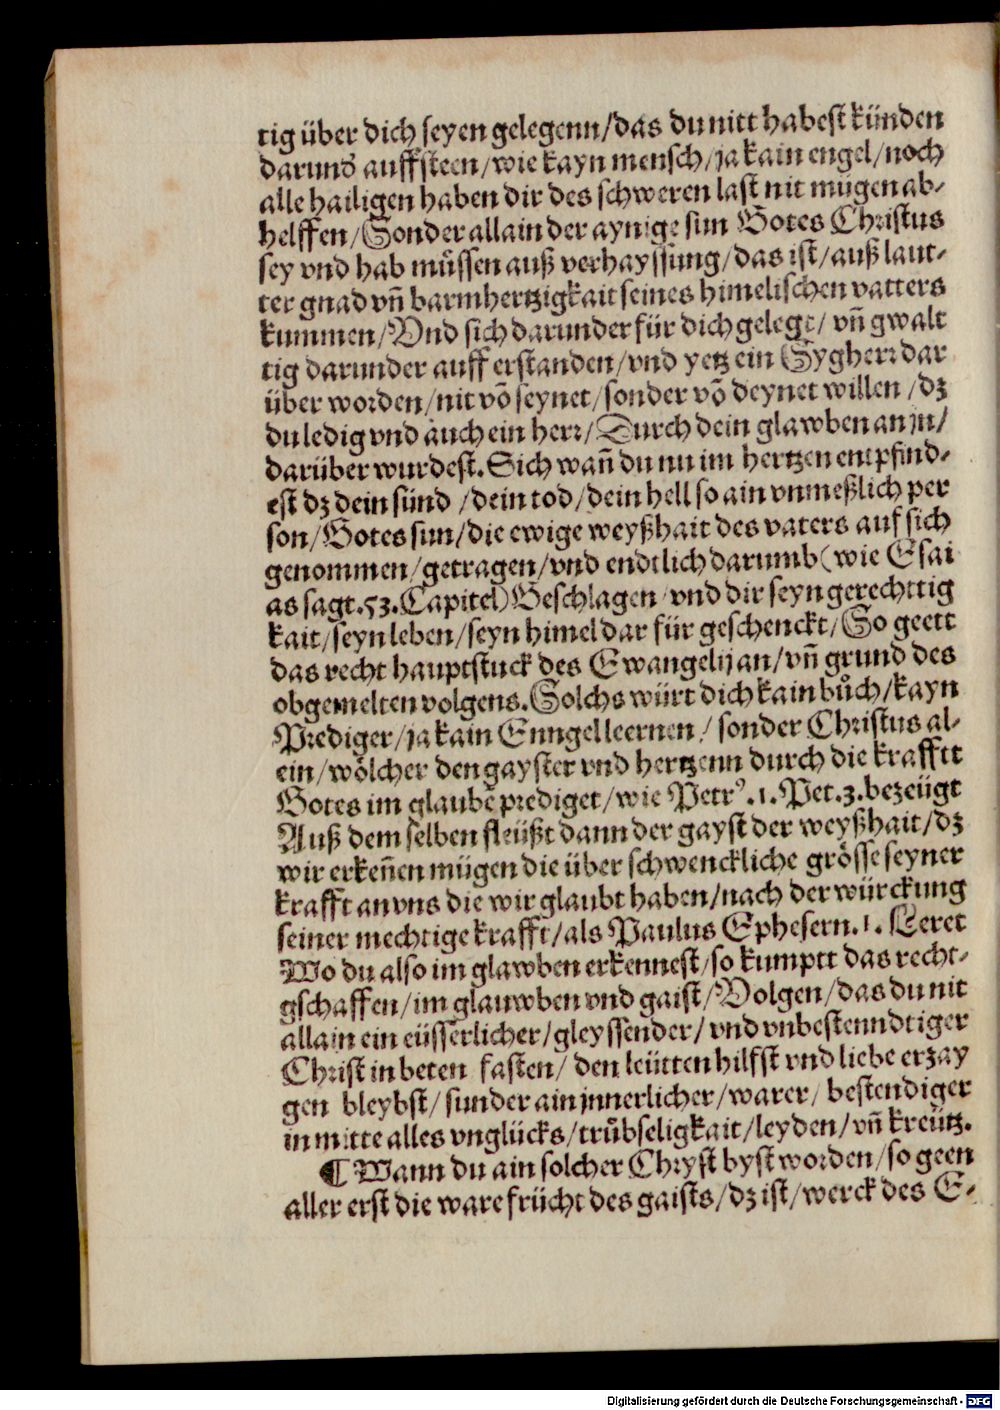 tig über dich seyen gelegenn/das du nitt habest künden
darund auffsteen/wie kayn mensch/ja kain engel/noch
alle hailigen haben dir des schweren last nit mügen ab-
helffen/Sonder allain der aynige sun Gotes Christus
sey vnd hab müssen auß verhayssung/das ist/auß laut-
ter gnad vñ barmhertzigkait seines himelischen vatters
kummen/Vnd sich darunder für dich gelegt/vñ gwalt
tig darunder auff erstanden/vnd yetz ein Sygherr dar
über worden/nit võ seynet/sonder võ deynet willen/dz
du ledig vnd auch ein herr/Durch dein glawben an jn/
darüber wurdest. Sich wañ du nu im hertzen empfind-
est dz dein sünd/dein tod/dein hell so ain vnmeßlich per
son/Gotes sun/die ewige weyßhait des vaters auf sich
genommen/getragen/vnd endtlich darumb(wie Esai
as sagt.53.Capitel)Geschlagen/vnd dir seyn gerechttig
kait/seyn leben/seyn himel dar für geschenckt/So geett
das recht hauptstuck des Ewangelij an/vñ grůnd des
obgemelten volgens.Solchs würt dich kain bůch/kayn
Prediger/ja kain Enngel leernen/sonder Christus al-
ein/wölcher den gayster vnd hertzenn durch die krafftt
Gotes im glaubẽ prediget/wie Petrꝰ.1.Pet.3.bezeügt
Auß dem selben fleüßt dann der gayst der weyßhait/dz
wir erkeñen mügen die über schwenckliche grösse seyner
krafft an vns die wir glaubt haben/nach der würckung
seiner mechtige krafft/als Paulus Ephesern.1.Leret
Wo du also im glawben erkennest/so kumptt das recht-
gschaffen/im glauwben vnd gaist/Volgen/das du nit
allain ein eüsserlicher/gleyssender/vnd vnbestenndtiger
Christ in beten fasten/den leütten hilfst vnd liebe erzay
gen bleybst/sunder ain jnnerlicher/warer/bestendiger
in mitte alles vnglücks/trůbseligkait/leyden/vñ kreütz.
¶ Wann du ain solcher Chryst byst worden/so geen
aller erst die ware frücht des gaists/dz ist/werck des E-
Digitalisierung gefördert durch die Deutsche Forschungsgemeinschaft - DFG